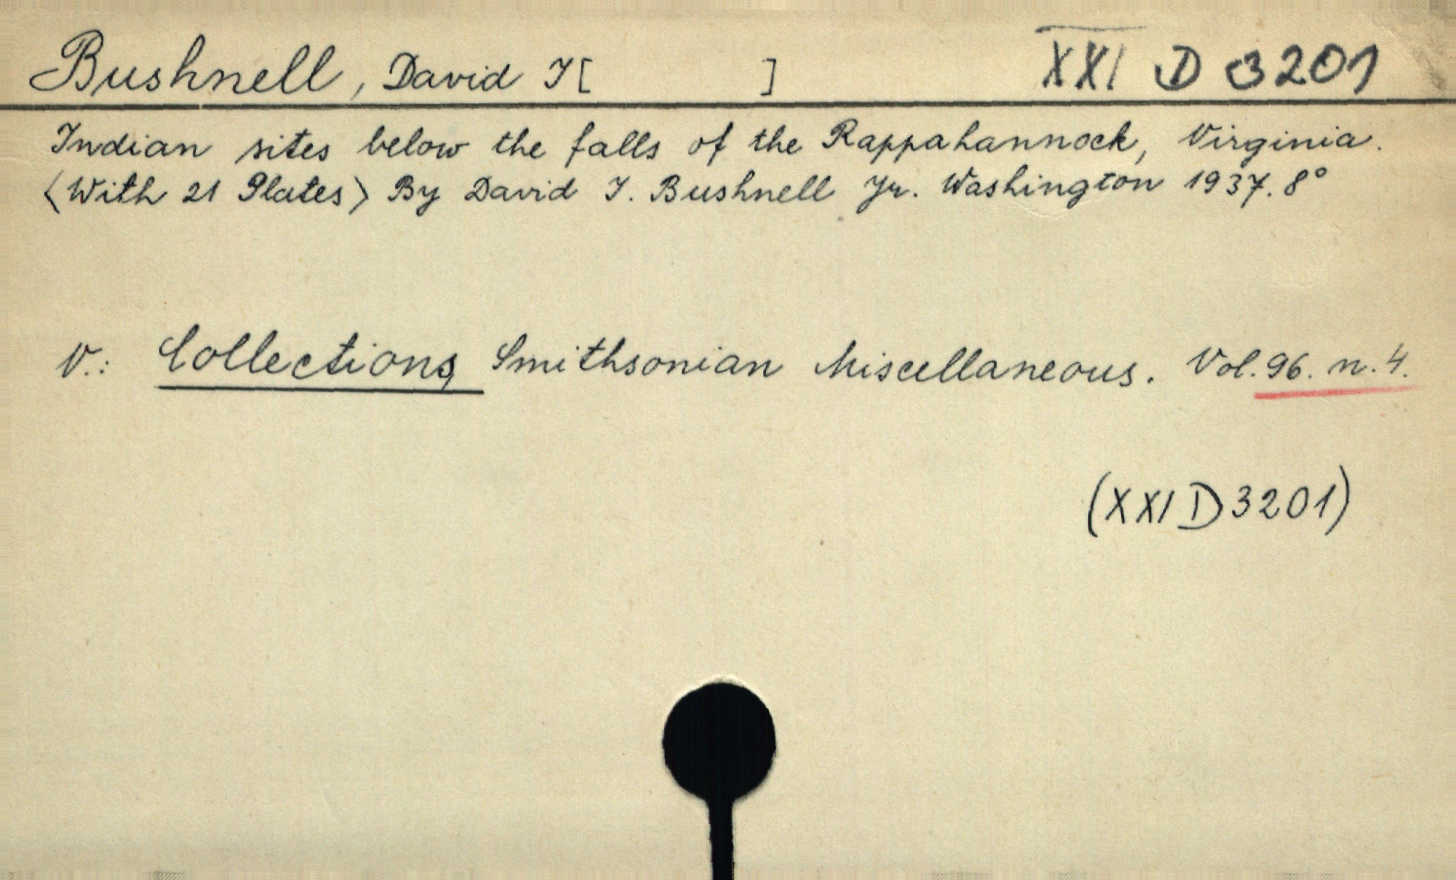 Bushnell, David I[ ] XXI D 3201
Indian sites below the falls of the Rappahannock, Virginia.
<With 21 Plates> By David I. Bushnell Jr. Washington 1937. 8°
V.: Collections Smithsonian Miscellaneous. Vol. 96. n. 4.
(XXI D 3201)